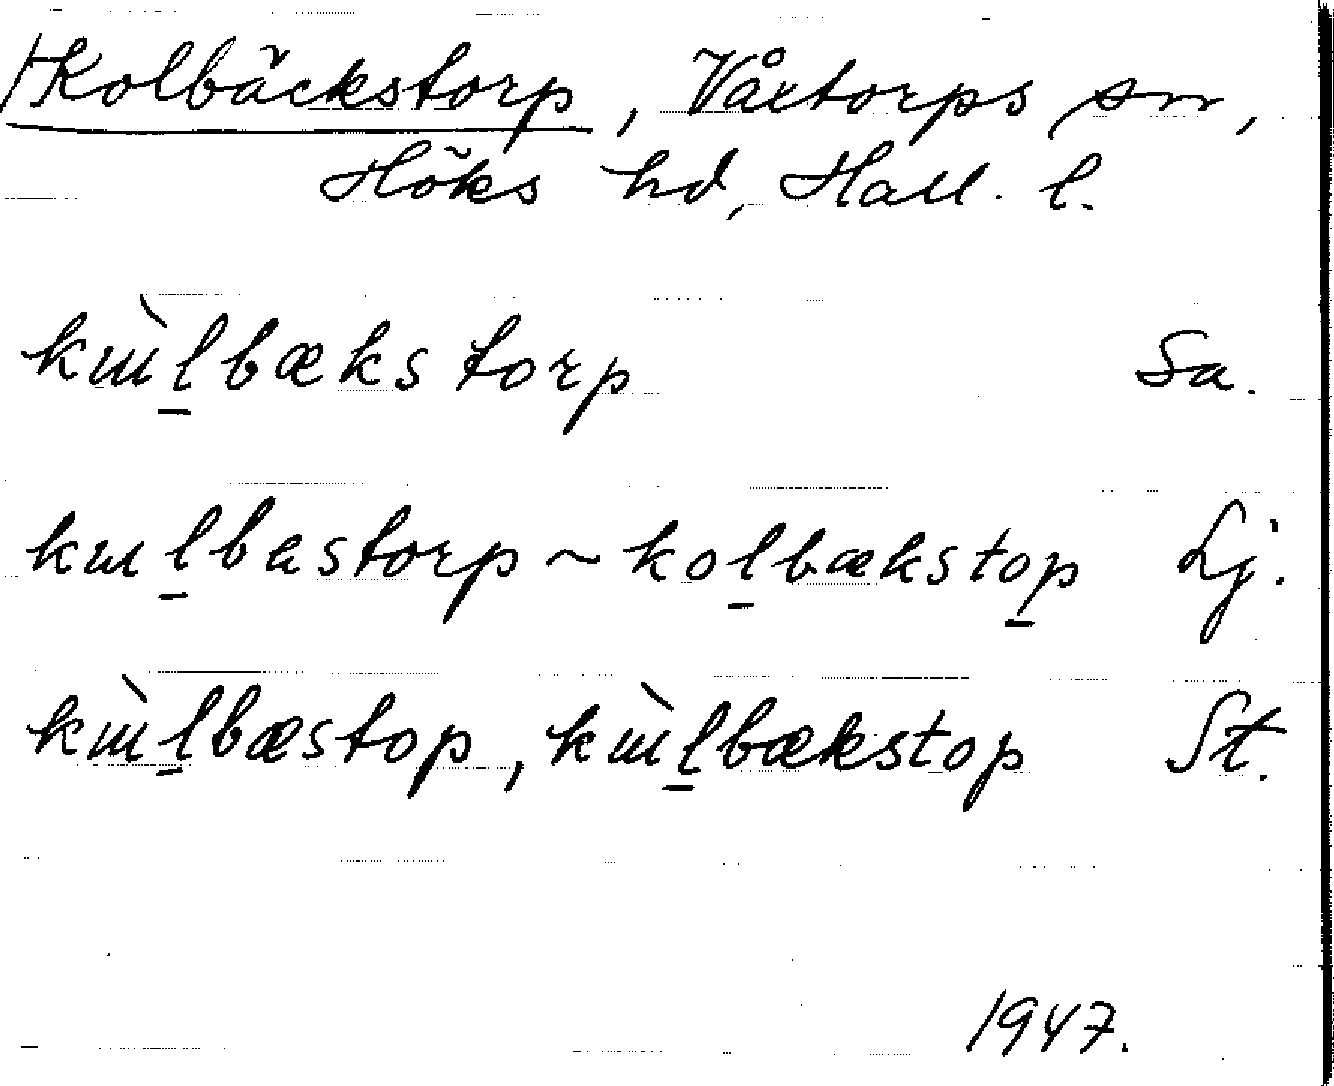 Kolbäckstorp, Våxtorps sn,
Höks hd, Hall. l.
kɯ̀l̠bækstorp Sa.
kɯl̠bastorp ~ kol̠bækstop̠ Lj.
kɯ̀l̠bæstop, kɯ̀l̠bækstop St.
1947.